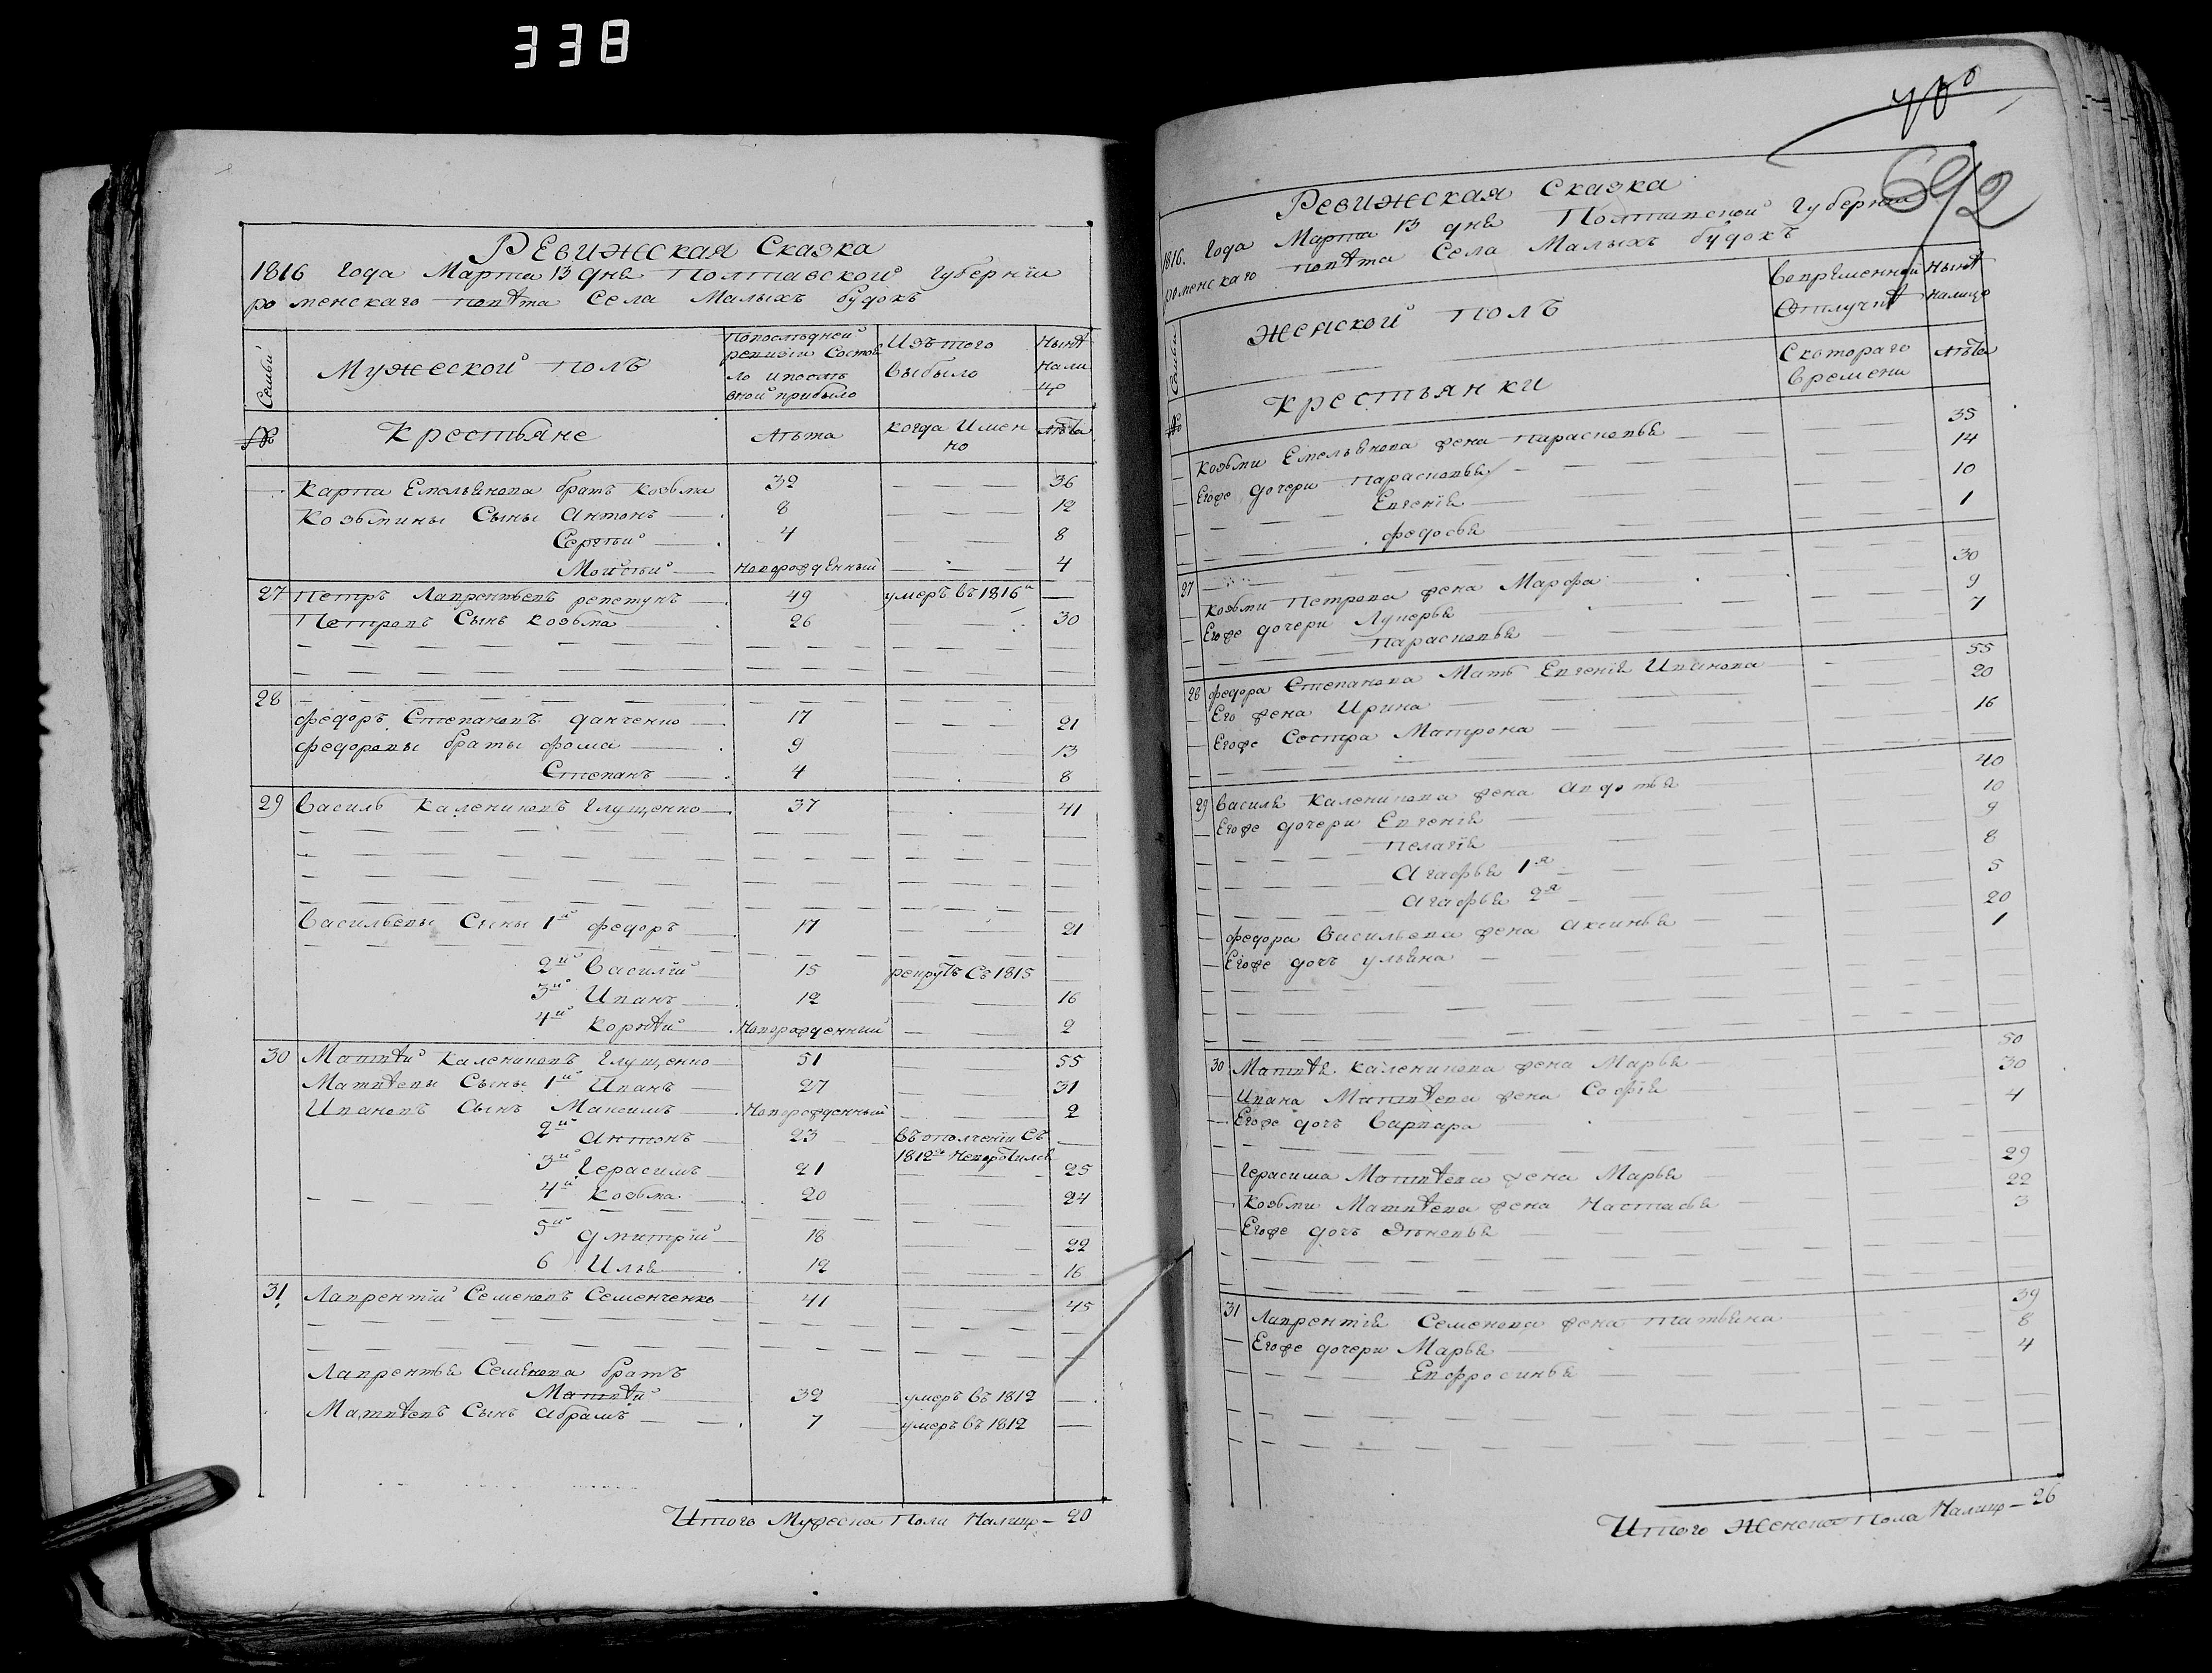 338
Ревижская Сказка
1816 Года Марта 13 дня Полтавской Губернїи
роменскаго повѣта Села Малыхъ будокъ
Семьи
Мужеской полъ
Попоследней
ревизіи Состоя
ло ипослѣ
оной прибыло
Изътого
выбыло
Нынѣ
Нали
цо
№
Крестьяне
Лѣта
когда Имен
но
Лѣта
Карпа Емельянова братъ козьма 32 36
Козьмины Сыны Антонъ 8 12
Сергѣй 4 8
Мойсѣй новорожденный 4
27 Петръ Лаврентьевъ репетунъ 49 умеръ въ 1816
Петровъ Сынъ козьма 26 30
28
федоръ Степановъ данченко 17 21
федоровы браты фома 9 13
Степанъ 4 8
29 Василь каленіковъ глущенко 37 41
Васильевы Сыны 1й федоръ 17 21
2й Василїй 15 рекрутъ Съ 1815
3й Иванъ 12 16
4й корнѣй Новорожденный 2
30 Матвѣй калениковъ глущенко 51 55
Матвѣевы Сыны 1й Иванъ 27 31
Ивановъ Сынъ Максимъ Новорожденный 2
2й антонъ 23 въ ополченіи Съ
1812го
3й герасимъ 21 25
4й козьма 20 24
5й дмитрїй 18 22
6 Илья 12 16
31 Лаврентїй Семеновъ Семенченко 41 45
Лаврентья Семенова братъ
Матвѣй 32 умеръ въ 1812
Матвѣевъ Сынъ абрамъ 7 умеръ въ 1812
Итого Мужеска Пола Налицо – 20
692
Ревижская Сказка
1816. Года Марта 13 дня Полтавской Губерніи
роменскаго повѣта Села Малыхъ будокъ
Семьи
Женской полъ
Вовременной
Отлучкѣ
Нынѣ
Налицо
№
Крестьянки
Скотораго
времени
Лѣта
козьми Емельянова жена парасковья 35
Егоже дочери парасковья 14
Евгенїя 10
федосья 1
27
козьми Петрова жена Марфа 30
Егоже дочери Лукерья 9
парасковья 7
28 федора Степанова Мать Евгенія Иванова 55
Его жена Ирина 20
Егоже Сестра Матрона 16
29 Василя каленікова жена авдотья 40
Егоже дочери Евгенія 10
пелагїя 9
Агафья 1я 8
Агафья 2я 5
федора Васильева жена аксинья 20
Егоже дочь ульяна 1
30 Матвѣя каленикова жена Марья 50
Ивана Матвѣева жена Софїя 30
Егоже дочь Варвара 4
герасима Матвѣева жена Марья 29
козьми Матвѣева жена Настасья 22
3
31 Лаврентія Семенова жена татьяна 39
Егоже дочери Марья 8
Евфросинья 4
Итого Женска Пола Налицо – 26